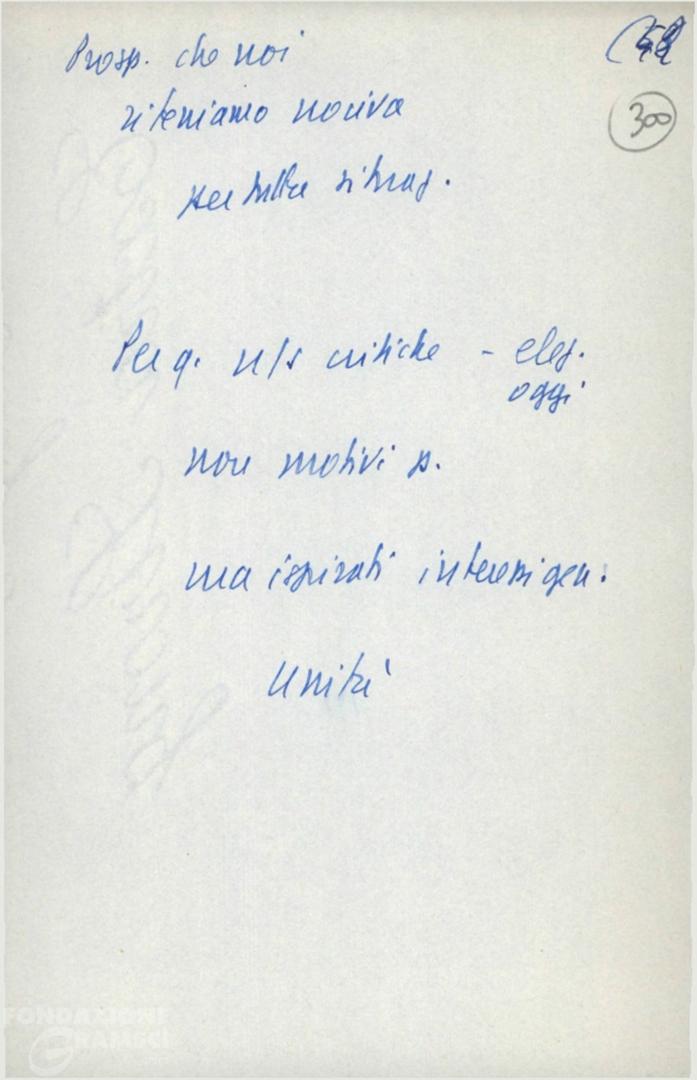 Prosp. che noi
riteniamo nociva
300
per tutta situaz.
Per q. n/s critiche - elez.
oggi
non motivi p.
ma ispirati interessi gen.
Unità
FONDAZIONE
GRAMSCI